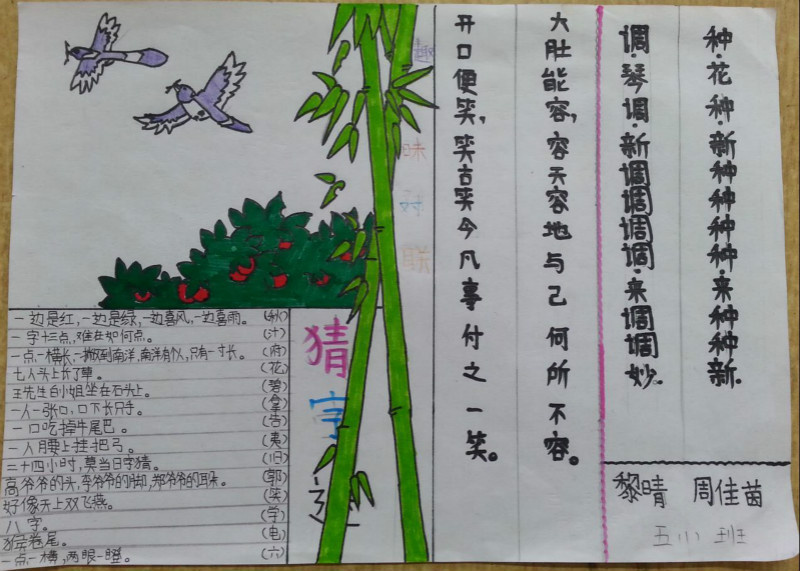 种·花种·新种种种种·来种种新.
调·琴调·新调调调调·来调调妙.
大肚能容，容天容地与己何所不容。
开口便笑，笑古笑今凡事付之一笑。
趣味对联
猜字迷
一边是红，一边是绿，一边喜风，一边喜雨。（秋）
一字十三点，难在如何点。（汁）
一点一横长，一撇到南洋，南洋有个人，只有一寸长。（府）
七人头上长了草。（花）
王先生白小姐坐在石头上。（碧）
一人一张口，口下长只手。（拿）
一口吃掉牛尾巴。（告）
一人腰上挂把弓。（夷）
二十四小时，莫当日字猜。（旧）
高爷爷的头，李爷爷的脚，郑爷爷的耳朵。（郭）
好像天上双飞燕。
八字。（学）
猴卷尾。（电）
一点一横，两眼一瞪。（六）
黎晴 周佳茵
五(1)班